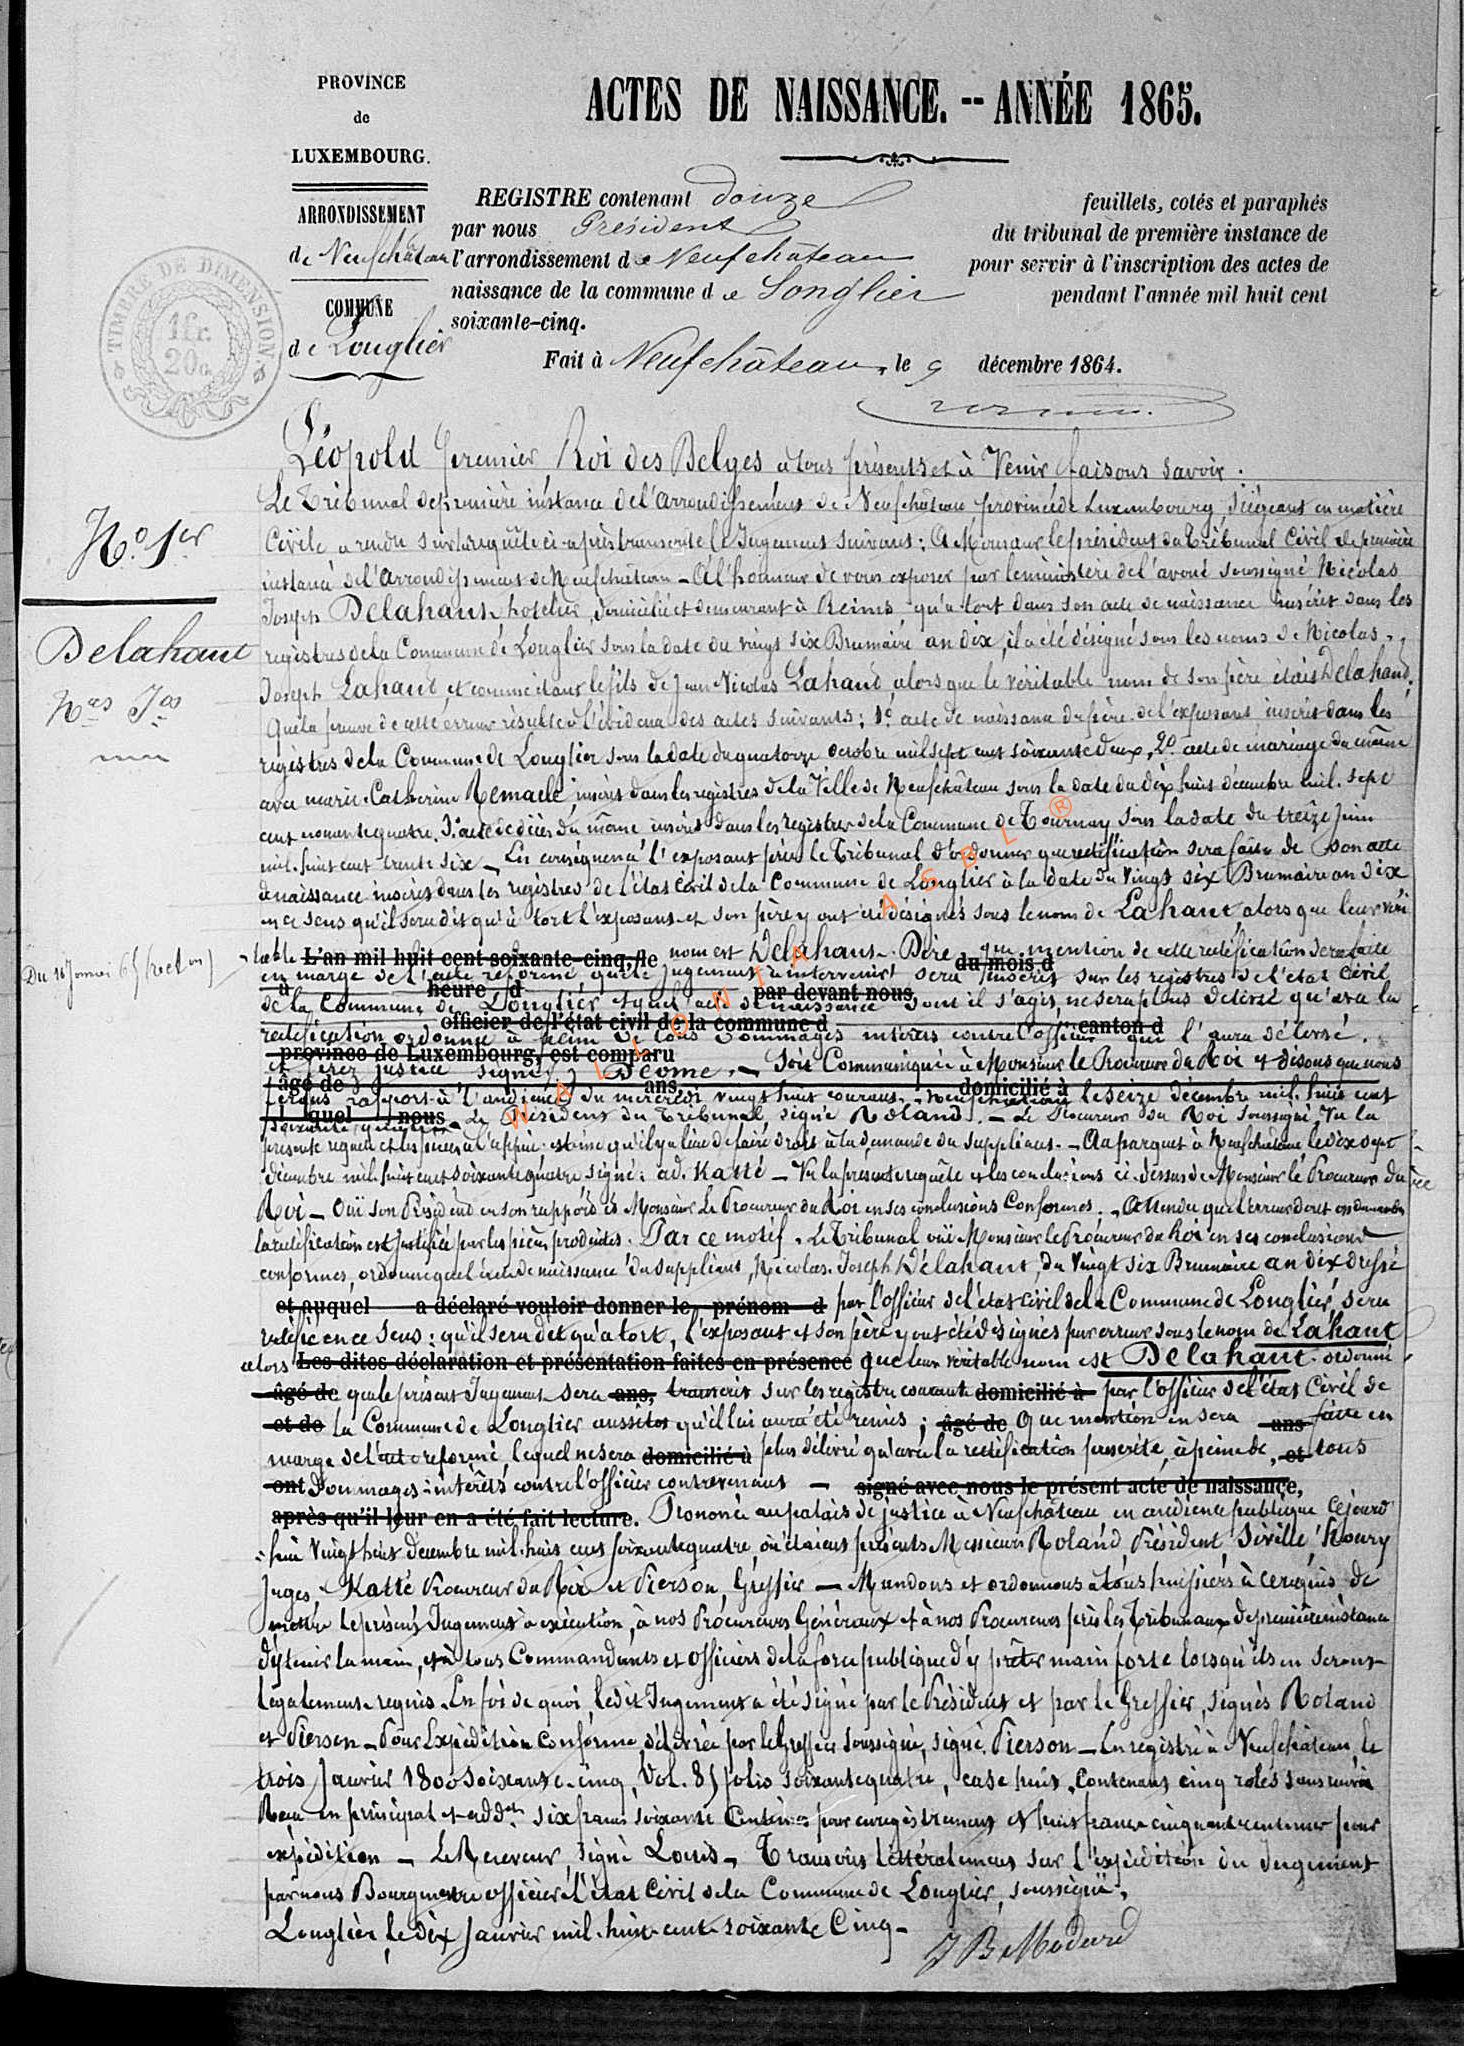 PROVINCE
de
LUXEMBOURG.
ARRONDISSEMENT
de Neufchâteau
COMMUNE
de Longlier
TIMBRE DE DIMENSION.
1 fr.
20 c.
ACTES DE NAISSANCE. -- ANNÉE 1865.
REGISTRE contenant douze feuillets, cotés et paraphés
par nous Président du tribunal de première instance de
l'arrondissement de Neufchâteau pour servir à l'inscription des actes de
naissance de la commune de Longlier pendant l'année mil huit cent
soixante-cinq.
Fait à Neufchâteau, le 9 décembre 1864.
N.o 1er
Delahaut
Nas Jos
Léopold premier Roi des Belges à tous présents et à Venir faisons savoir.
Le Tribunal de première instance de l'arrondissement de Neufchateau province de Luxembourg siégeant en matière
Civile a rendu sur la requête ci-après transcrite le Jugement suivant: A Monsieur le président du Tribunal Civil de première
instance de l'arrondissement de Neufchâteau - A l'honneur de vous exposer par le ministère de l'avoué soussigné Nicolas
Joseph Delahaut hotelier, domicilié et demeurant à Reims qu'a tort dans son acte de naissance inséré dans les
registres de la Commune de Longlier sous la date du vingt six Brumaire an dix, il a été désigné sous les noms de Nicolas
Joseph Lahaut et comme étant le fils de Jean Nicolas Lahaut, alors que le véritable nom de son père était Delahaut.
Que la preuve de cette erreur résulte à l'évidence des actes suivants; 1o acte de naissance du père de l'exposant inséré dans les
registres de la Commune de Longlier sous la date du quatorze octobre mil sept cent soixante deux, 2o acte de mariage du même
avec marie-Catherine Remacle inséré dans les registres de la Ville de Neufchâteau sous la date du dix huit décembre mil sept
cent nonante quatre, 3o acte de décès du même inséré dans les registres de la Commune de Tournay sous la date du treize Juin
mil huit cent trente six - En conséquence l'exposant prie le Tribunal d'ordonner que rectification sera faite de son acte
de naissance inséré dans les registres de l'état civil de la Commune de Longlier à la date du Vingt six Brumaire an dix
en ce sens qu'il sera dit qu'à tort l'exposant et son père y ont été désignés sous le nom de Lahaut alors que leur véri
Du 16 Janvier 65 (rect on)
table L'an mil huit cent soixante-cinq, le nom est Delahaut. Dire que mention de cette rectification sera faite
du mois d
en marge de l'acte réformé que le jugement à intervenir sera inséré sur les registres de l'état civil
à heure d par devant nous
de la Commune de Longlier et que l'acte de naissance dont il s'agit ne sera plus délivré qu'avec la
officier de l'état civil de la commune d canton d
rectification ordonnée à peine de tous dommages intérêts contre l'officier qui l'aura délivré.
province de Luxembourg, est comparu
et ferez justice signé Déome. - Soit Communiqué à Monsieur le Procureur du Roi et disons que nous
âgé de ans domicilié à
ferons rapport à l'audience du mercredi vingt huit courant. Neufchâteau le seize décembre mil huit cent
l quel nous
soixante quatre. Le Président du Tribunal, signé Roland. - Le Procureur du Roi soussigné, Vu la
présente requête et les pièces à l'appui, estime qu'il y a lieu de faire droit à la demande du suppliant. - Au parquet à Neufchâteau le dix sept
décembre mil huit cent soixante quatre signé: ad. Katté - Vu la présente requête et les conclusions ci-dessus de Monsieur le Procureur du
Roi - Ouï son Président en son rapport et Monsieur Le Procureur du Roi en ses conclusions Conformes. - Attendu que l'erreur dont on demande
la rectification est justifiée par les pièces produites. Par ce motif, Le Tribunal ouï Monsieur le Procureur du Roi en ses conclusions
conformes, ordonne que l'acte de naissance du suppliant, Nicolas Joseph Delahaut, du Vingt six Brumaire an dix dressé
et auquel a déclaré vouloir donner le prénom d par l'officier de l'état civil de la Commune de Longlier, sera
rectifié en ce sens: qu'il sera dit qu'a tort, l'exposant et son père y ont été désignés par erreur sous le nom de Lahaut
alors Les dites déclaration et présentation faites en présence que leur véritable nom est Delahaut. ordonne
âgé de que le présent Jugement sera ans, transcrit sur les registres courants domicilié à par l'officier de l'état Civil de
et de la Commune de Longlier aussitot qu'il lui aura été remis; âgé de Que mention en sera ans faite en
marge de l'acte réformé, lequel ne sera domicilié à plus délivré qu'avec la rectification prescrite, à peine de, et tous
ont Dommages-intérêts contre l'officier contrevenant - signé avec nous le présent acte de naissance,
après qu'il leur en a été fait lecture. Prononcé au palais de justice à Neufchâteau en audience publique Cejourd
hui Vingt huit Décembre mil huit cent soixante quatre, où étaient présents Messieurs Roland, Président, Séville, Henry
Juges, Katté Procureur du Roi et Pierson, Greffier - Mandons et ordonnons à tous huissiers à ce requis, de
mettre le présent Jugement à exécution, à nos Procureurs Généraux et à nos Procureurs près les Tribunaux de première instance
d'y tenir la main, et à tous Commandants et officiers de la force publique d'y prêter main forte lorsqu'ils en seront
légalement requis. En foi de quoi, ledit Jugement a été signé par le Président et par le Greffier, signés Roland
et Pierson - Pour Expédition Conforme, délivrée par le Greffier soussigné, signé, Pierson - Enregistré à Neufchâteau, le
trois Janvier 1800 soixante-cinq, Vol. 85 folio soixante quatre, case huit, contenant cinq roles sans renvoi
Reçu en principal et addels six francs soixante centimes pour enregistrement et huit francs cinquante centimes pour
expédition - Le Receveur, signé Louis - Transcris littéralement sur l'expédition du Jugement
par nous Bourgmestre officier d'état Civil de la Commune de Longlier, soussigné.
Longlier, le dix Janvier mil-huit-cent-soixante Cinq -
J B Medard
WALLONIA ASBL ®